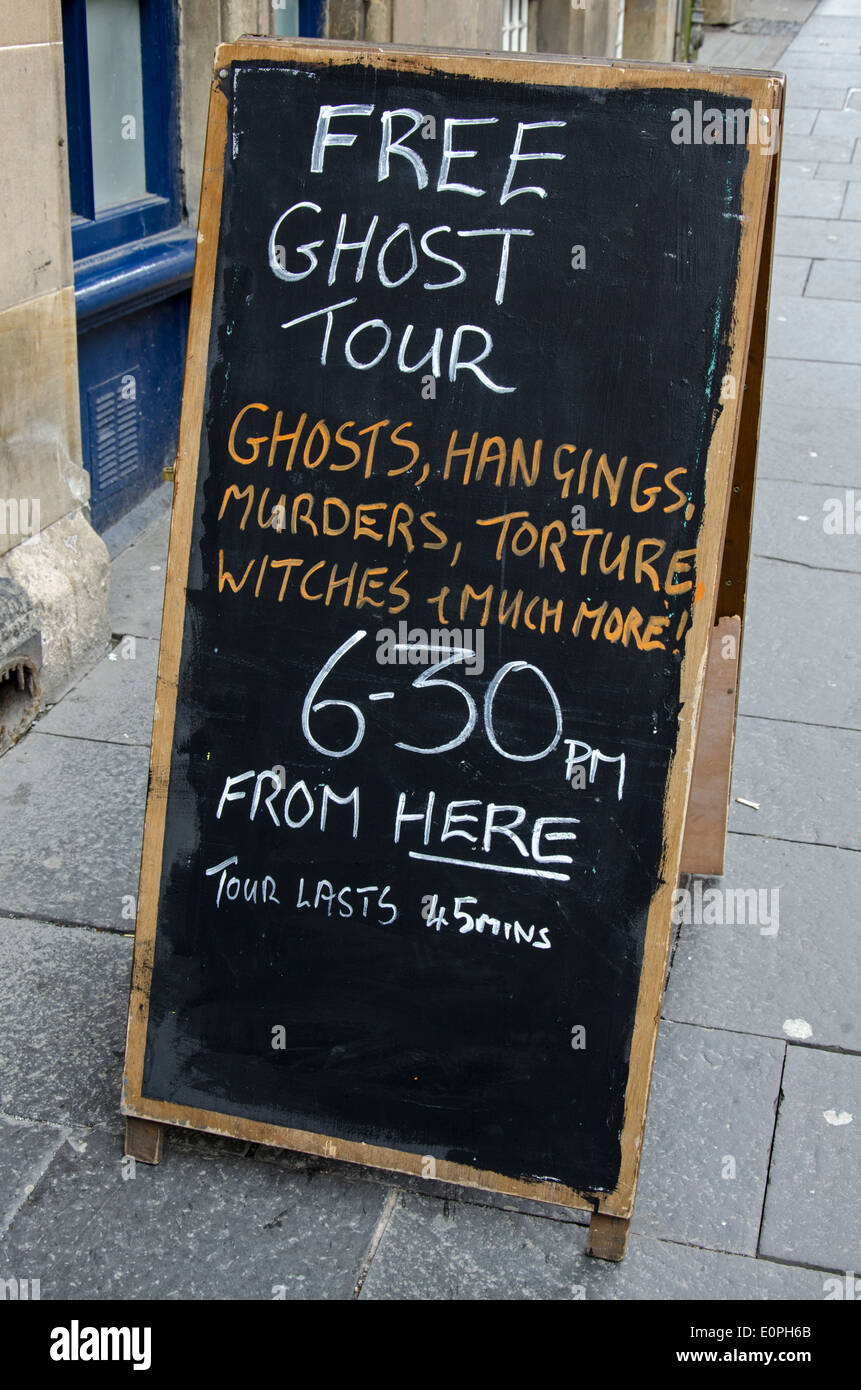 FREE
GHOST
TOUR
GHOSTS, HANGINGS,
MURDERS, TORTURE,
WITCHES + MUCH MORE!
6-30 PM
FROM HERE
TOUR LASTS 45 MINS
alamy
Image ID: E0PH6B
www.alamy.com